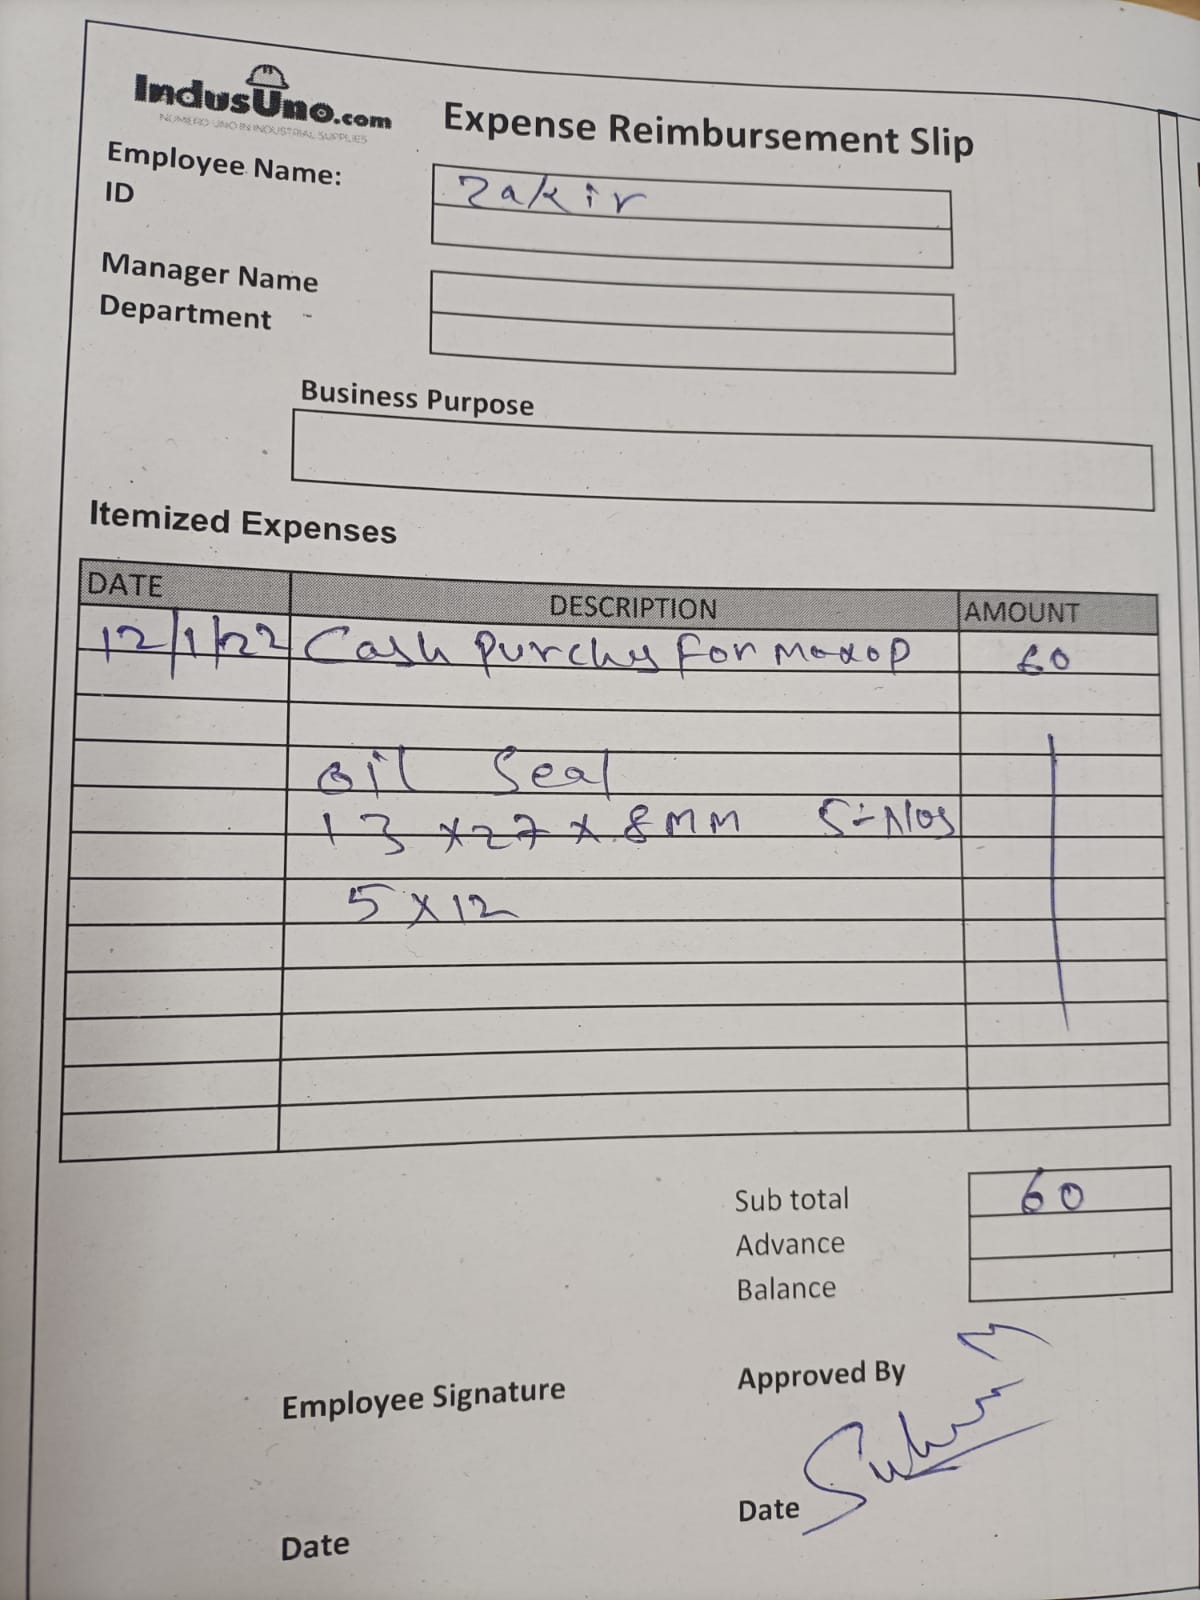 IndusUno.com
NUMERO UNO IN INDUSTRIAL SUPPLIES
Expense Reimbursement Slip
Employee Name: Zakir
ID
Manager Name
Department
Business Purpose
Itemized Expenses
DATE DESCRIPTION AMOUNT
12/1/22 Cash purchs For 60
oil Seal
13 x 27 x 8MM 5=Nos
5 x 12
Sub total 60
Advance
Balance
Employee Signature
Approved By
Date
Date